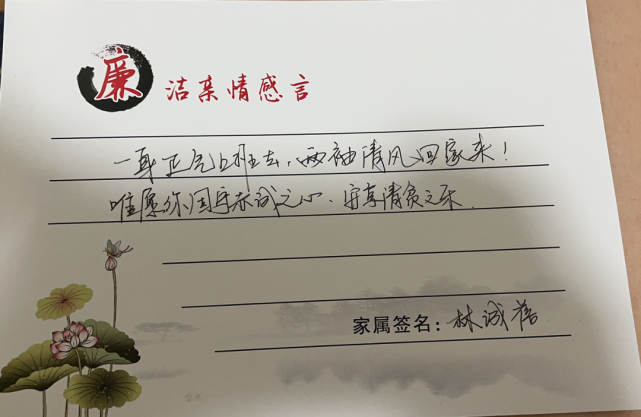 廉洁亲情感言
一身正气上班去,两袖清风回家来!
唯愿你固守赤诚之心、安享清贫之乐.
家属签名:林诚蓓